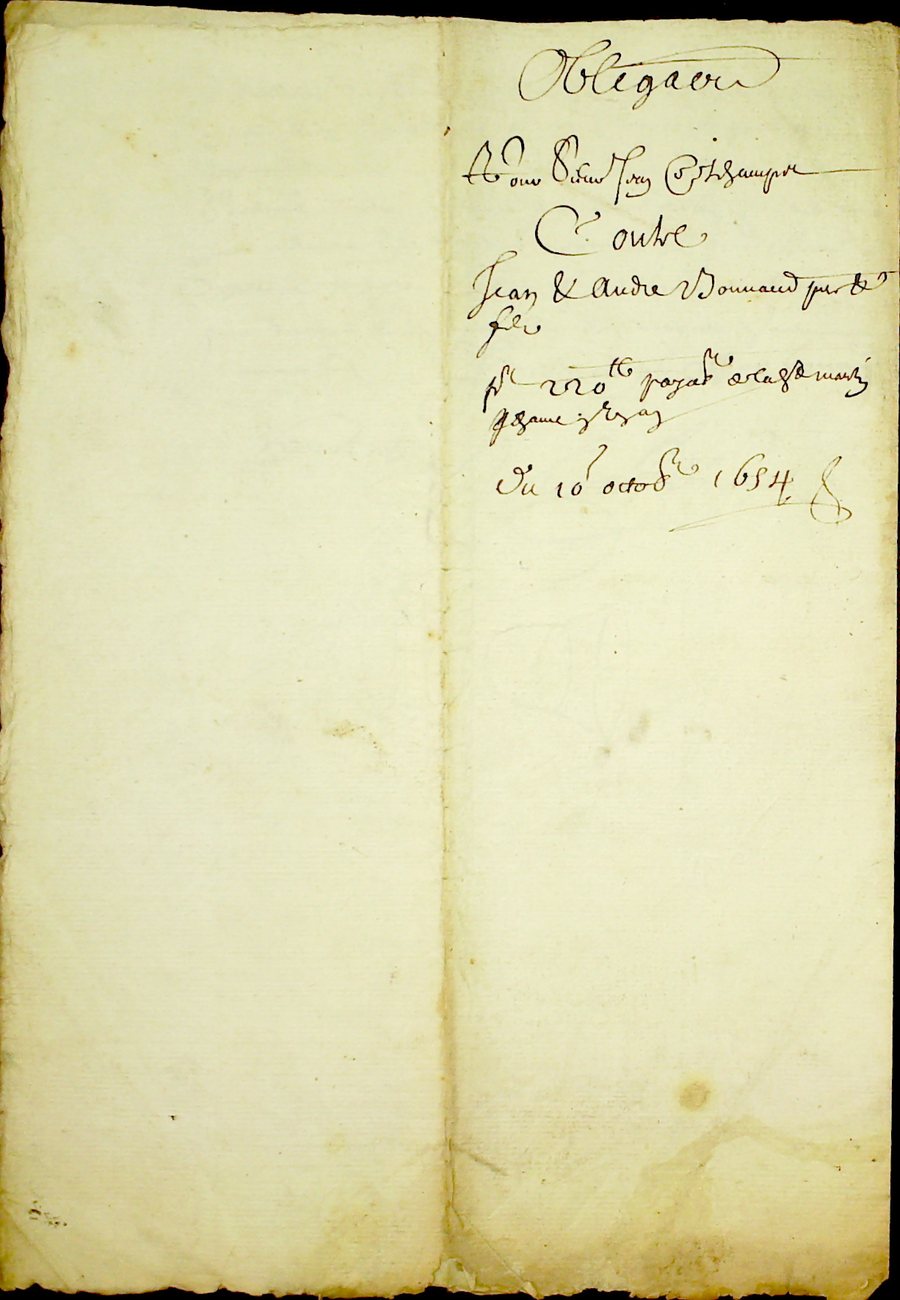 Obligaon
Pour Sieur Jean
Contre
Jean & Andre Bonnaud pere &
filz
pr 220 tt payabl a la St martin
prochaine
Du 10 octobr 1654